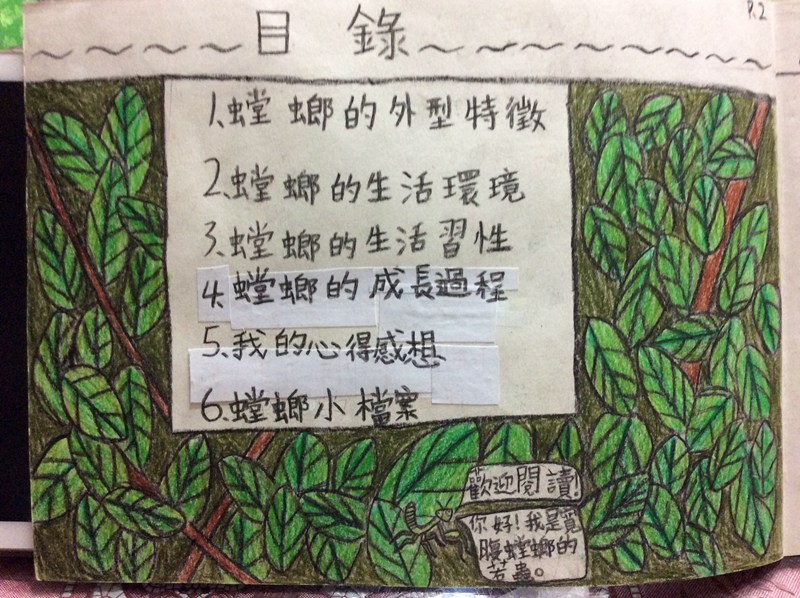 P.2
目錄
1.螳螂的外型特徵
2.螳螂的生活環境
3.螳螂的生活習性
4.螳螂的成長過程
5.我的心得感想
6.螳螂小檔案
歡迎閱讀!
你好!我是寬
腹螳螂的
若蟲。